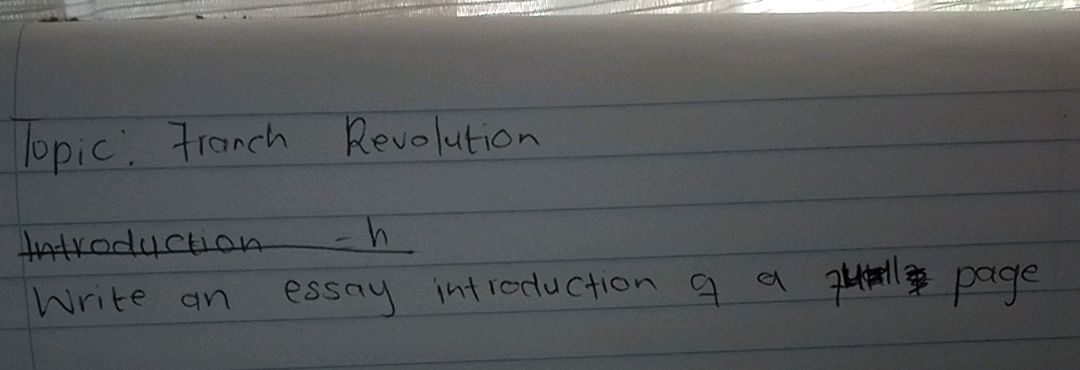 Topic: Franch Revolution
Introduction - h
Write an essay introduction of a page